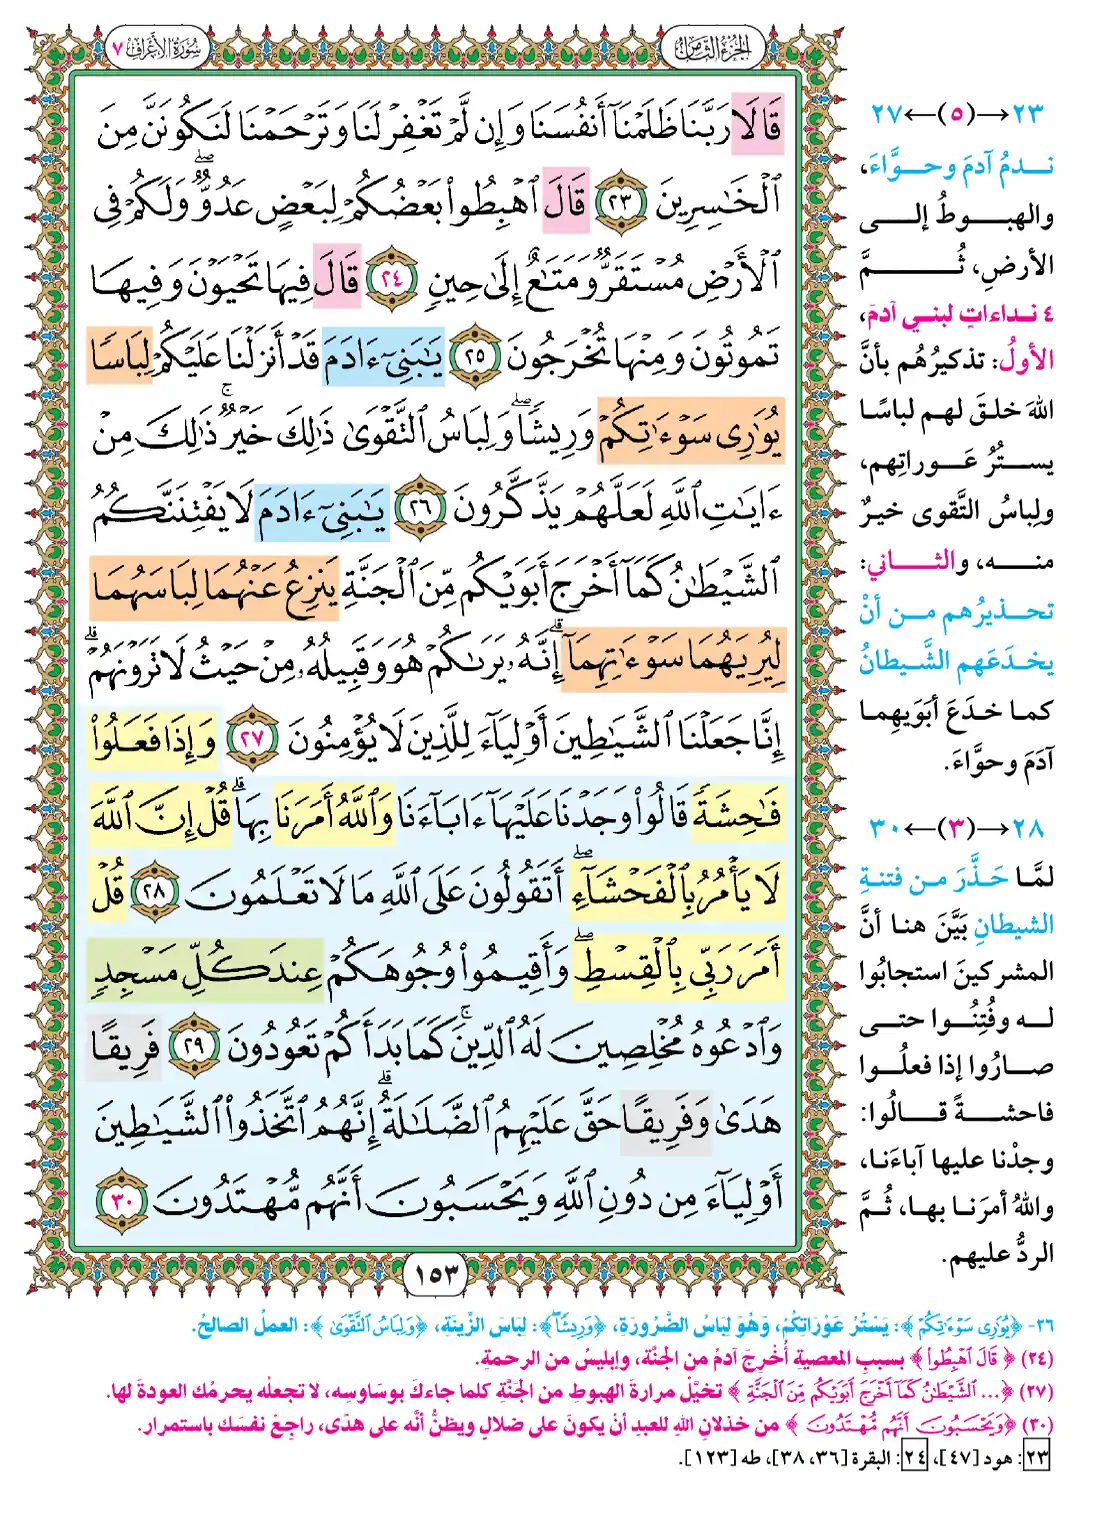 الجزء الثامن
سورة الأعراف ٧
قَالَا رَبَّنَا ظَلَمْنَآ أَنفُسَنَا وَإِن لَّمْ تَغْفِرْ لَنَا وَتَرْحَمْنَا لَنَكُونَنَّ مِنَ
ٱلْخَـٰسِرِينَ ٢٣ قَالَ ٱهْبِطُوا۟ بَعْضُكُمْ لِبَعْضٍ عَدُوٌّ ۖ وَلَكُمْ فِى
ٱلْأَرْضِ مُسْتَقَرٌّ وَمَتَـٰعٌ إِلَىٰ حِينٍ ٢٤ قَالَ فِيهَا تَحْيَوْنَ وَفِيهَا
تَمُوتُونَ وَمِنْهَا تُخْرَجُونَ ٢٥ يَـٰبَنِىٓ ءَادَمَ قَدْ أَنزَلْنَا عَلَيْكُمْ لِبَاسًا
يُوَٰرِى سَوْءَٰتِكُمْ وَرِيشًا ۖ وَلِبَاسُ ٱلتَّقْوَىٰ ذَٰلِكَ خَيْرٌ ۚ ذَٰلِكَ مِنْ
ءَايَـٰتِ ٱللَّهِ لَعَلَّهُمْ يَذَّكَّرُونَ ٢٦ يَـٰبَنِىٓ ءَادَمَ لَا يَفْتِنَنَّكُمُ
ٱلشَّيْطَـٰنُ كَمَآ أَخْرَجَ أَبَوَيْكُم مِّنَ ٱلْجَنَّةِ يَنزِعُ عَنْهُمَا لِبَاسَهُمَا
لِيُرِيَهُمَا سَوْءَٰتِهِمَآ ۗ إِنَّهُۥ يَرَىٰكُمْ هُوَ وَقَبِيلُهُۥ مِنْ حَيْثُ لَا تَرَوْنَهُمْ ۗ
إِنَّا جَعَلْنَا ٱلشَّيَـٰطِينَ أَوْلِيَآءَ لِلَّذِينَ لَا يُؤْمِنُونَ ٢٧ وَإِذَا فَعَلُوا۟
فَـٰحِشَةً قَالُوا۟ وَجَدْنَا عَلَيْهَآ ءَابَآءَنَا وَٱللَّهُ أَمَرَنَا بِهَا ۗ قُلْ إِنَّ ٱللَّهَ
لَا يَأْمُرُ بِٱلْفَحْشَآءِ ۖ أَتَقُولُونَ عَلَى ٱللَّهِ مَا لَا تَعْلَمُونَ ٢٨ قُلْ
أَمَرَ رَبِّى بِٱلْقِسْطِ ۖ وَأَقِيمُوا۟ وُجُوهَكُمْ عِندَ كُلِّ مَسْجِدٍ
وَٱدْعُوهُ مُخْلِصِينَ لَهُ ٱلدِّينَ ۚ كَمَا بَدَأَكُمْ تَعُودُونَ ٢٩ فَرِيقًا
هَدَىٰ وَفَرِيقًا حَقَّ عَلَيْهِمُ ٱلضَّلَـٰلَةُ ۗ إِنَّهُمُ ٱتَّخَذُوا۟ ٱلشَّيَـٰطِينَ
أَوْلِيَآءَ مِن دُونِ ٱللَّهِ وَيَحْسَبُونَ أَنَّهُم مُّهْتَدُونَ ٣٠
١٥٣
٢٣→(٥)←٢٧
ندمُ آدمَ وحوَّاءَ،
والهبوطُ إلى
الأرضِ، ثُمَّ
٤ نداءاتٍ لبني آدمَ،
الأولُ: تذكيرُهُم بأنَّ
اللهَ خلقَ لهم لباسًا
يستُرُ عَوراتِهم،
ولِباسُ التَّقوى خيرٌ
منه، والثاني:
تحذيرُهم من أنْ
يخدَعَهم الشَّيطانُ
كما خدَعَ أبَوَيهِما
آدمَ وحوَّاءَ.
٢٨→(٣)←٣٠
لمَّا حَذَّرَ من فتنةِ
الشيطانِ بَيَّنَ هنا أنَّ
المشركينَ استجابُوا
له وفُتِنُوا حتى
صارُوا إذا فعلُوا
فاحشةً قالُوا:
وجدْنا عليها آباءَنا،
واللهُ أمرَنا بها، ثُمَّ
الردُّ عليهم.
٢٦- ﴿يُوَٰرِى سَوْءَٰتِكُمْ﴾: يَسْتُرُ عَوْرَاتِكُمْ، وَهُوَ لِبَاسُ الضَّرُورَةِ، ﴿وَرِيشًا ۖ﴾: لِبَاسَ الزِّينَةِ، ﴿وَلِبَاسُ ٱلتَّقْوَىٰ﴾: العملُ الصالحُ.
(٢٤) ﴿قَالَ ٱهْبِطُوا۟﴾ بسببِ المعصيةِ أُخْرِجَ آدمُ من الجنَّة، وإبليسُ من الرحمةِ.
(٢٧) ﴿... ٱلشَّيْطَـٰنُ كَمَآ أَخْرَجَ أَبَوَيْكُم مِّنَ ٱلْجَنَّةِ﴾ تخيَّل مرارةَ الهبوطِ من الجَنَّةِ كلما جاءكَ بوساوسِه، لا تجعلْه يحرمُك العودةَ لها.
(٣٠) ﴿وَيَحْسَبُونَ أَنَّهُم مُّهْتَدُونَ﴾ من خذلانِ اللهِ للعبدِ أنْ يكونَ على ضلالٍ ويظنُّ أنَّه على هدًى، راجِعْ نفسَك باستمرار.
٢٣: هود [٤٧]، ٢٤: البقرة [٣٦، ٣٨]، طه [١٢٣].